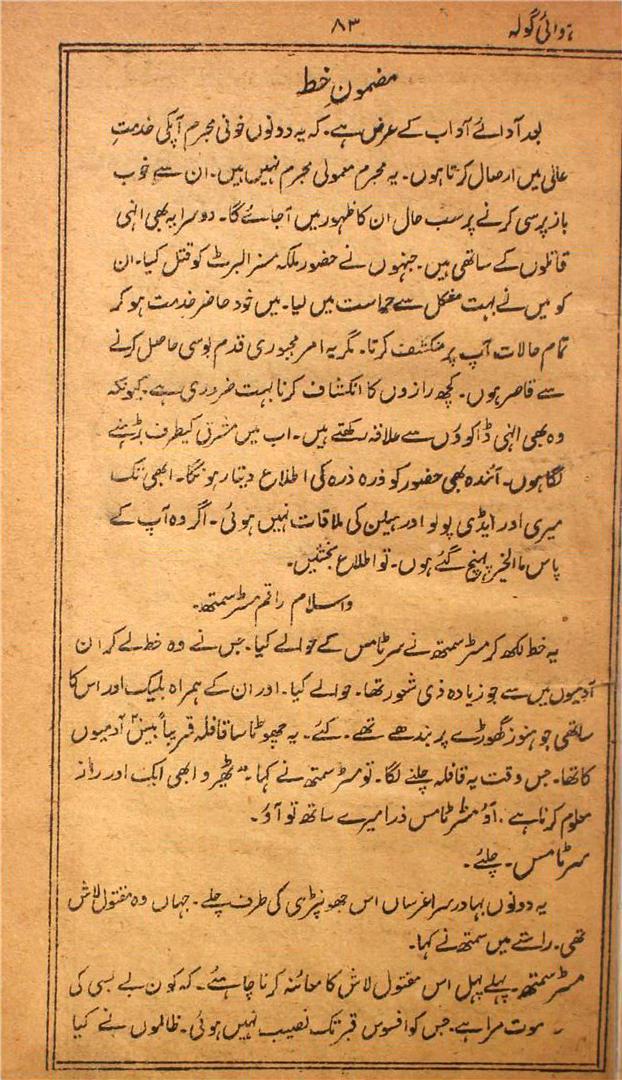 ہوائی گولہ
۸۳
مضمون خط
بعد آدائے آداب کے عرض ہے۔ کہ یہ دونوں خونی مجرم آپکی خدمت
عالی میں ارصال کرتا ہوں۔ یہ مجرم معمولی مجرم نہیں ہیں۔ ان سے خوب
باز پرسی کرنے پر سب حال ان کا ظہور میں آجائے گا۔ دوسرا یہ بھی انہی
قاتلوں کے ساتھی ہیں۔ جنہوں نے حضور ملکہ مسز البرٹ کو قتل کیا۔ ان
کو میں نے بہت مشکل سے حراست میں لیا۔ میں خود حاضر خدمت ہو کر
تمام حالات آپ پر منکشف کرتا۔ مگر یہ امر مجبوری قدم بوسی حاصل کرنے
سے قاصر ہوں۔ کچھ رازوں کا انکشاف کرنا بہت ضروری ہے۔ کیونکہ
وہ بھی انہی ڈاکوؤں سے علاقہ رکھتے ہیں۔ اب میں مشرق کیطرف بڑہنے
لگا ہوں۔ آئندہ بھی حضور کو ذرہ ذرہ کی اطلاع دیتا رہونگا۔ ابھی تک
میری اور ایڈی پولو اور ہیلن کی ملاقات نہیں ہوئی۔ اگر وہ آپ کے
پاس مالخیر پہنچ گئے ہوں۔ تو اطلاع بخشیں۔
واسلام راقم مسٹر سمتھ۔
یہ خط لکھ کر مسٹر سمتھ نے سر ٹامس کے حوالے کیا۔ جس نے وہ خط لے کر ان
آدمیوں میں سے جو زیادہ ذی شعور تھا۔ حوالے کیا۔ اور ان کے ہمراہ بلیک اور اس کا
ساتھی جو ہنوز گھوڑے پر بندھے تھے۔ کئے۔ یہ چھوٹا سا قافلہ قریباً بیس ۲۰ آدمیوں
کا تھا۔ جس وقت یہ قافلہ چلنے لگا۔ تو مسٹر سمتھ نے کہا۔ "ٹھیرو ابھی ایک اور راز
معلوم کرنا ہے۔ آؤ مسٹر ٹامس ذرا میرے ساتھ تو آؤ۔
سر ٹامس۔ چلئے۔
یہ دونوں بہادر سراغرساں اس جھونپڑی کی طرف چلے۔ جہاں وہ مقتول لاش
تھی۔ راستے میں سمتھ نے کہا۔
مسٹر سمتھ۔ پہلے پہل اس مقتول لاش کا معائنہ کرنا چاہئے۔ کہ کون بے بسی کی
موت مرا ہے۔ جس کو افسوس قبر تک نصیب نہیں ہوئی۔ ظالموں نے کیا